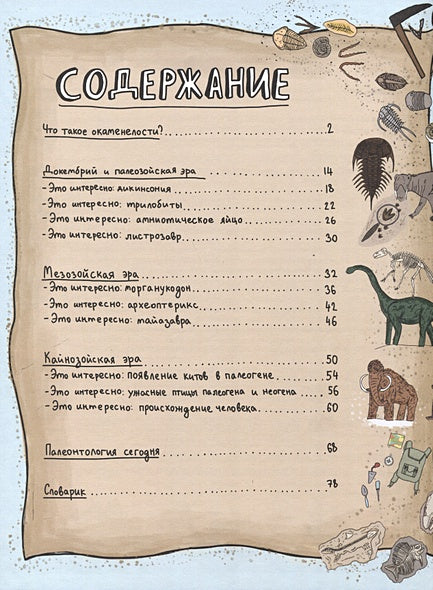 СОДЕРЖАНИЕ
Что такое окаменелости? 2
Докембрий и палеозойская эра 14
-Это интересно: дикинсония 18
-Это интересно: трилобиты 22
-Это интересно: амниотическое яйцо 26
-Это интересно: листрозавр 30
Мезозойская эра 32
-Это интересно: морганукодон 36
-Это интересно: археоптерикс 42
-Это интересно: майазавра 46
Кайнозойская эра 50
-Это интересно: появление китов в палеогене 54
-Это интересно: ужасные птицы палеогена и неогена 56
-Это интересно: происхождение человека 60
Палеонтология сегодня 68
Словарик 78